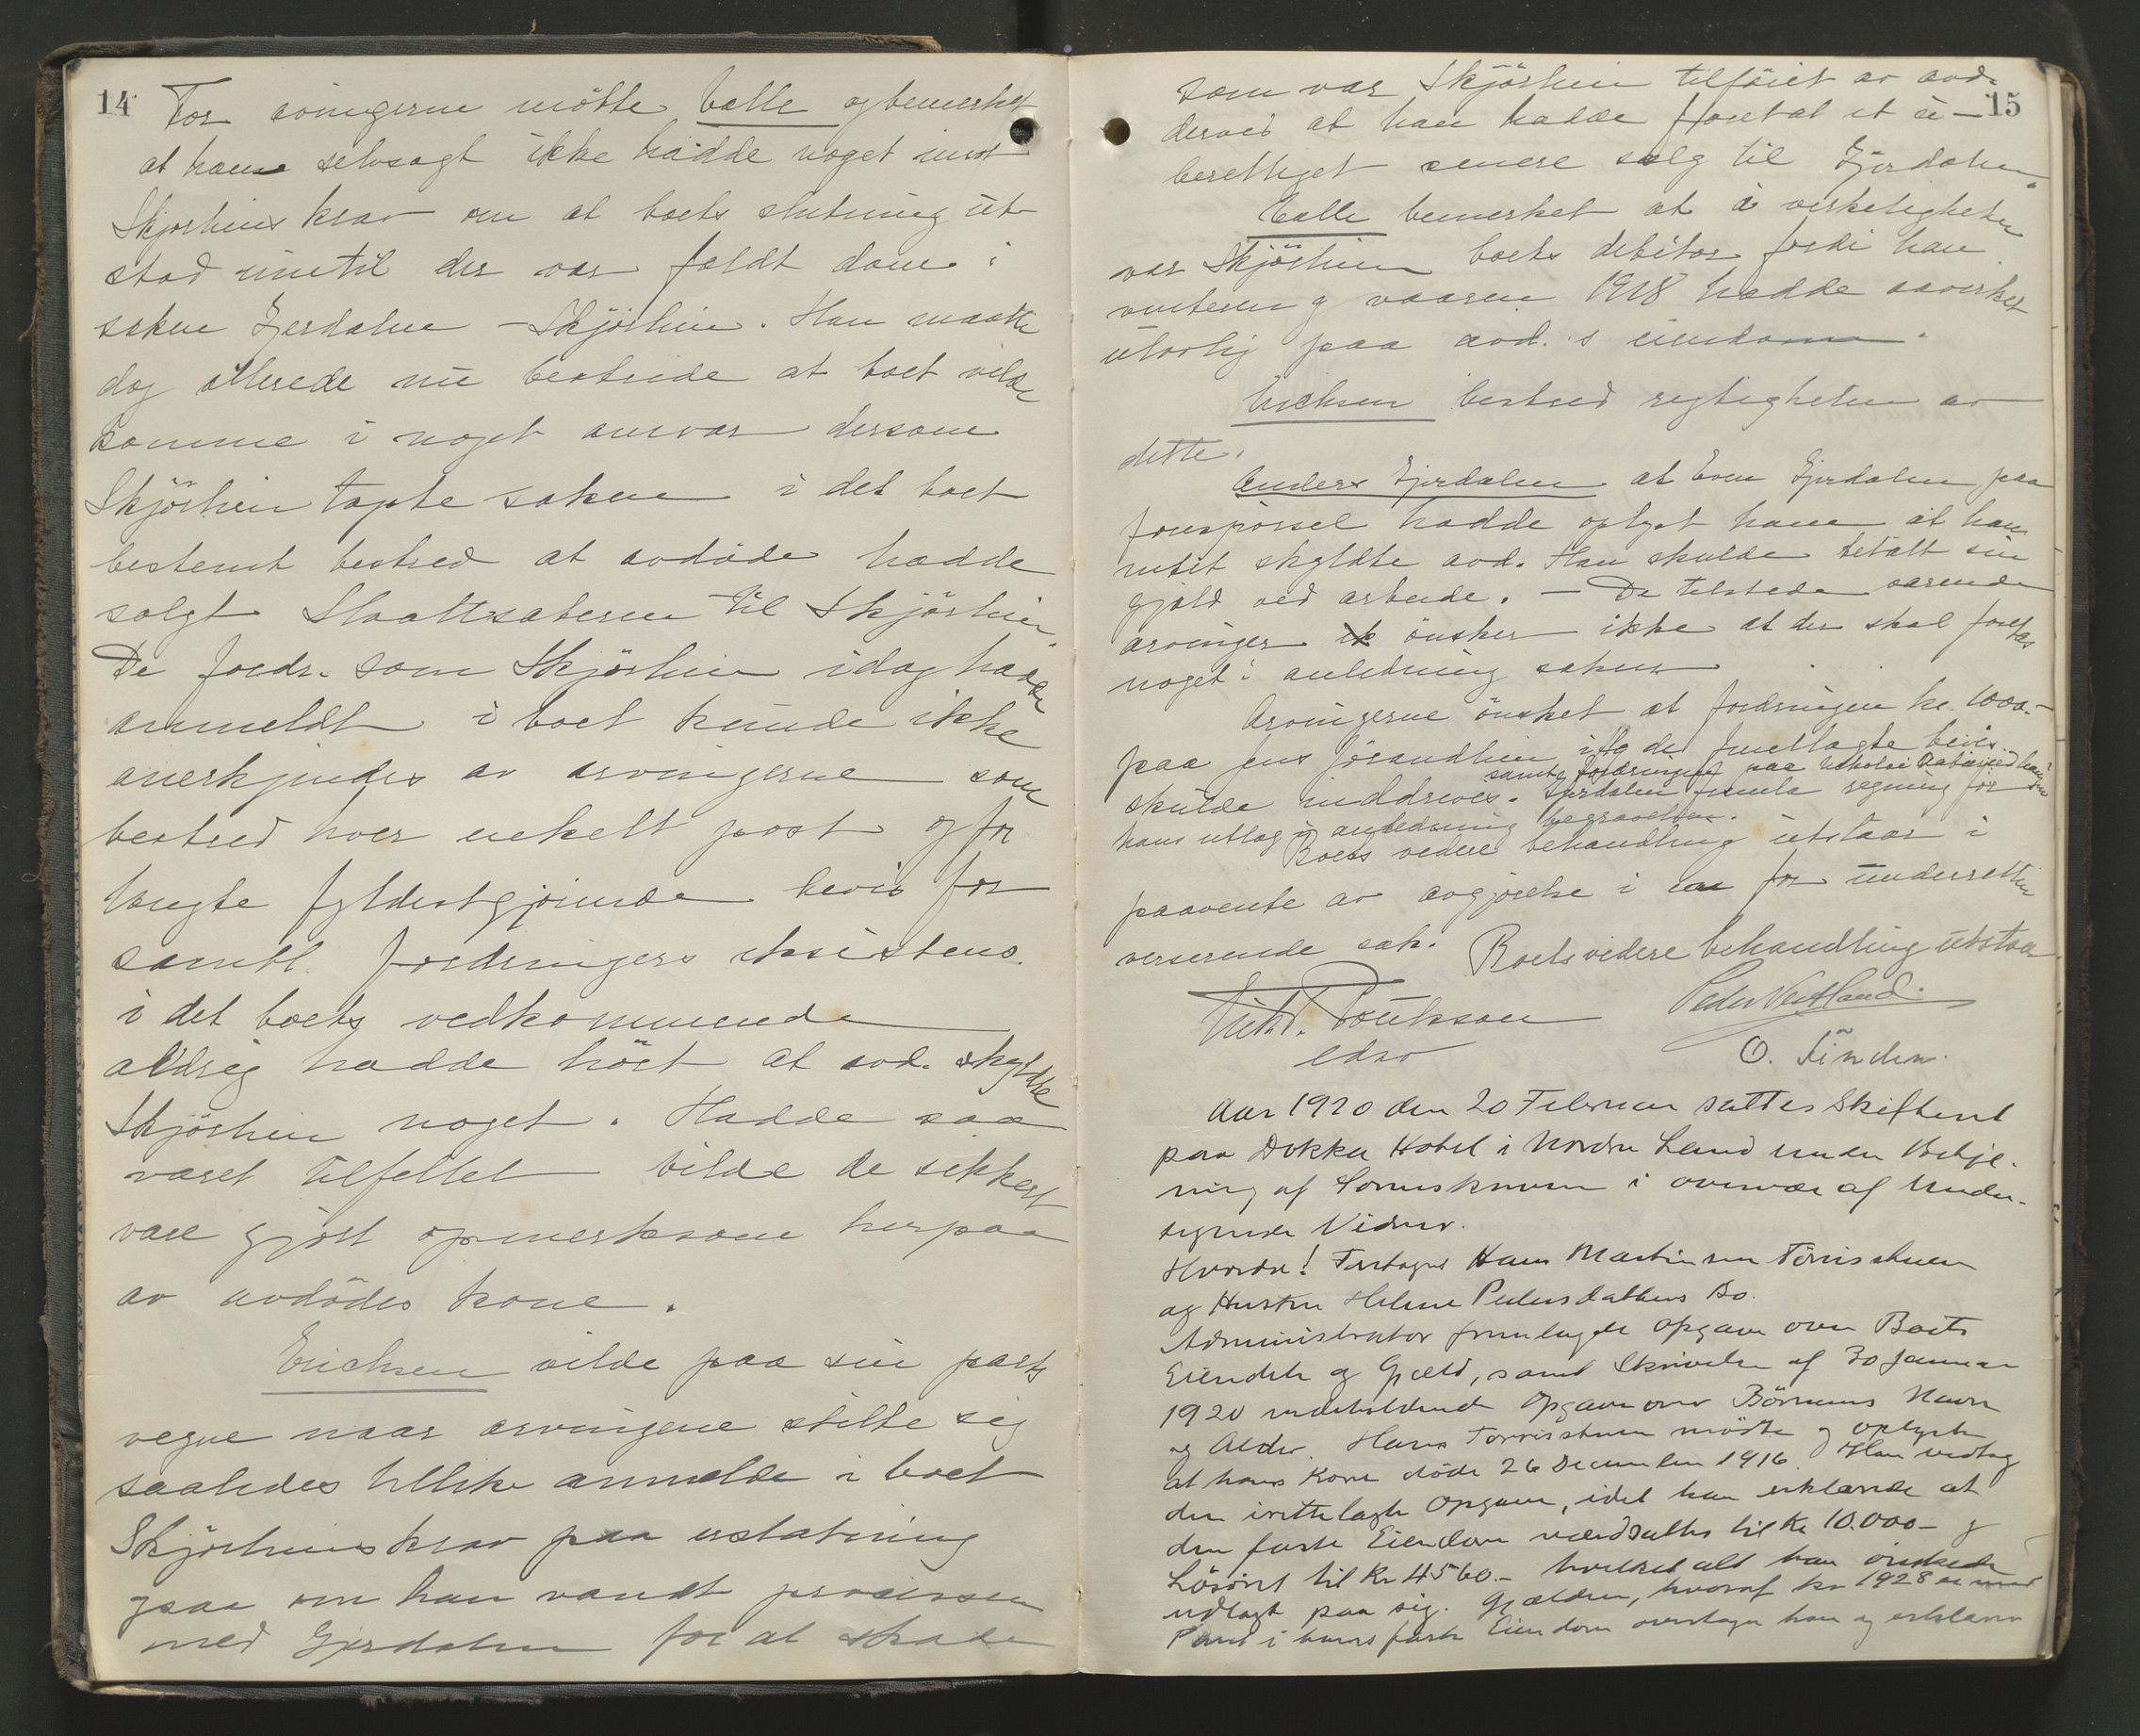 14
For arvingerne mötte Balle og bemerket
at hane selvsagt ikke hadde noget imot
Skjørlien's krav om at boets slutning ut-
stod inntil der var faldt dom i
saken Gjerdalen - Skjörlien. Han maatte
dog allerede nu bestride at boet vilde
komme i noget ansvar dersom
Skjörlien tapte saken i det boet
bestemt bestred at avdöde hadde
solgt til Skjörlien.
De fordr. som Skjörlien idag hadde
anmeldt i boet kunde ikke
anerkjendes av arvingerne som
bestred hver enkelt post og for
langte fyldestgjörende bevis for
samtl. fordringers eksistens.
i det boets vedkommende
aldrig hadde hört at avd. skyldte
Skjörlien noget. Hadde saa
været tilfellet vilde de sikkert
være gjort opmerksom herpaa
av avdödes kone.
Erichsen vilde paa sin parts
vegne naar arvingene stilte sig
saaledes tillike anmelde i boet
Skjörliens krav paa erstatning
ogsaa om han vandt processen
med Gjerdalen for at skade
15
som var Skjörlien tilföiet av avd.
derved at han hadde foretat et u-
berettiget senere salg til Gjerdalen.
Balle bemerket at i virkeligheten
var Skjörlien boets debitor fordi han
vinteren og vaaren 1918 hadde avvirket
ulovlig paa avd.s eiendom.
Erichsen bestred rigtigheten av
dette.
Anders Gjerdalen at Even Gjerdalen paa
forespörsel hadde oplyst ham at han
intet skyldte avd. Han skulde betalt sin
gjæld ved arbeide. - De tilstede værende
arvinger ønsker ikke at der skal foretas
noget i anledning saken
Arvingerne ønsket at fordringen kr. 1000.-
paa Jens Jörandlien iflg det fremlagte bevis
samt fordringen paa
skulde inddrives. Gjerdalen fremla regning for
hans utlæg i anledning begravelsen.
Boets videre behandling utstaar i
paavente av avgjörelse i en for underretten
verserende sak. Boets videre behandling utstaar
Poulsson
Peder Vestland.
edsv
O. Linden.
Aar 1920 den 20 Februar sattes Skifteret
paa Dokka Hotel i Nordre Land under Betje-
ning af Sorenskriveren i overvær af Under-
tegnede Vidner.
Hvorda! Foretoges Hans Martinsen Törrisstuen
og Hustru Helene Pedersdatters Bo.
Administrator fremlagde Opgave over Boets
Eiendele og Gjæld, samt Skrivelse af 30 Januar
1920 indeholdende Opgave over Börnenes Navn
og Alder. Hans Törrisstuen mödte og oplyste
at hans Kone döde 26 December 1916. Han vedtog
den irettelagte Opgave, idet han erklærede at
den faste Eiendom værdsattes til Kr 10.000- og
Lösöret til Kr 4560.- hvilket alt han önskede
udlagt paa sig. Gjælden, hvoraf kr 1928 er mod
Pant i hans faste Eiendom overtager han og erklærer